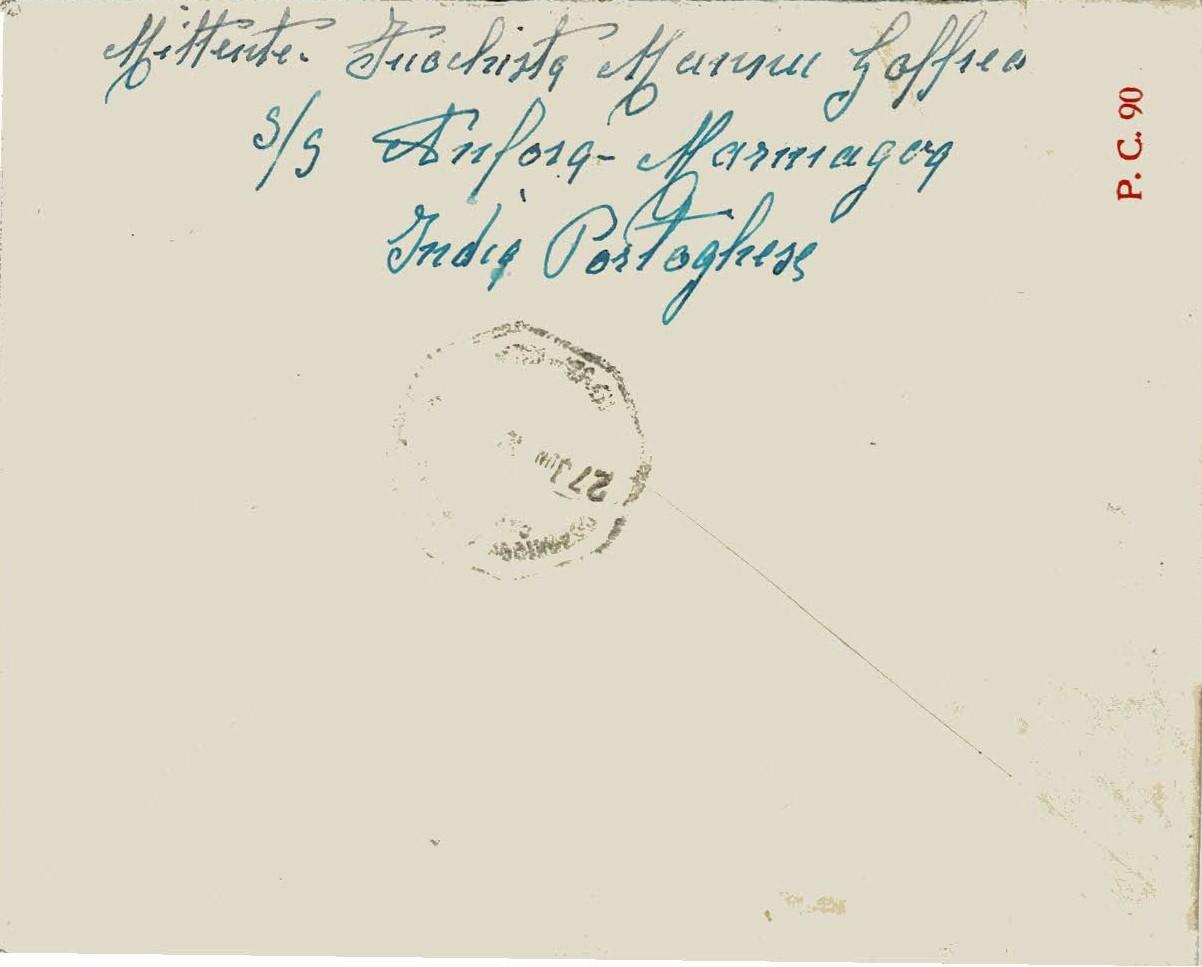 Mittente. Fuochista Mannu Goffredo
S/S Anfora - Marmagoa
India Portoghese
P. C. 90
27 JUN